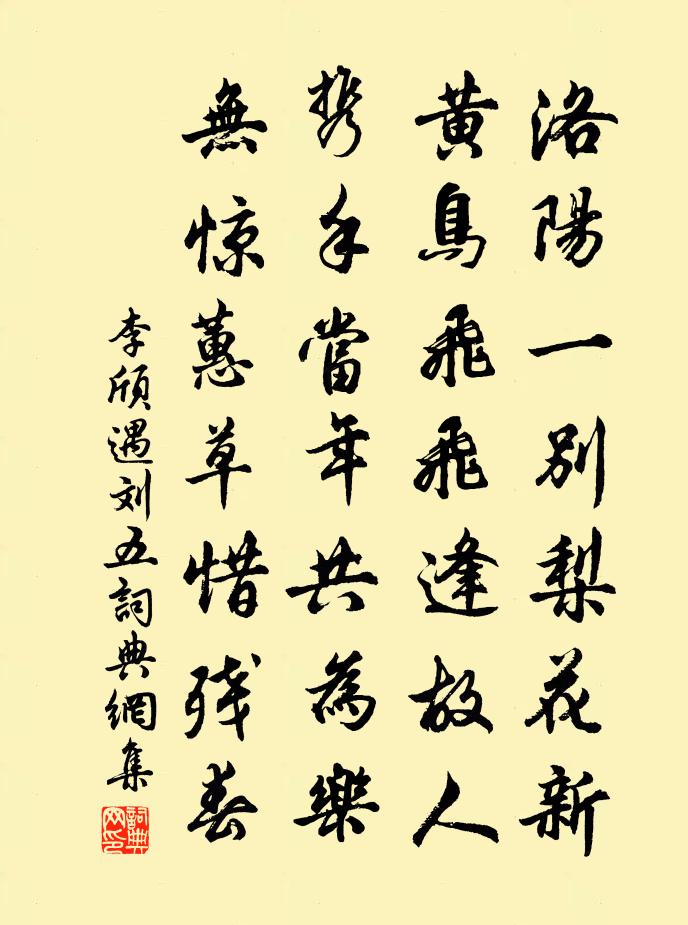 洛陽一别梨花新
黄鳥飛飛逢故人
携手當年共為樂
無惊蕙草惜残春
李頎遇刘五詞典網集
詞典网印